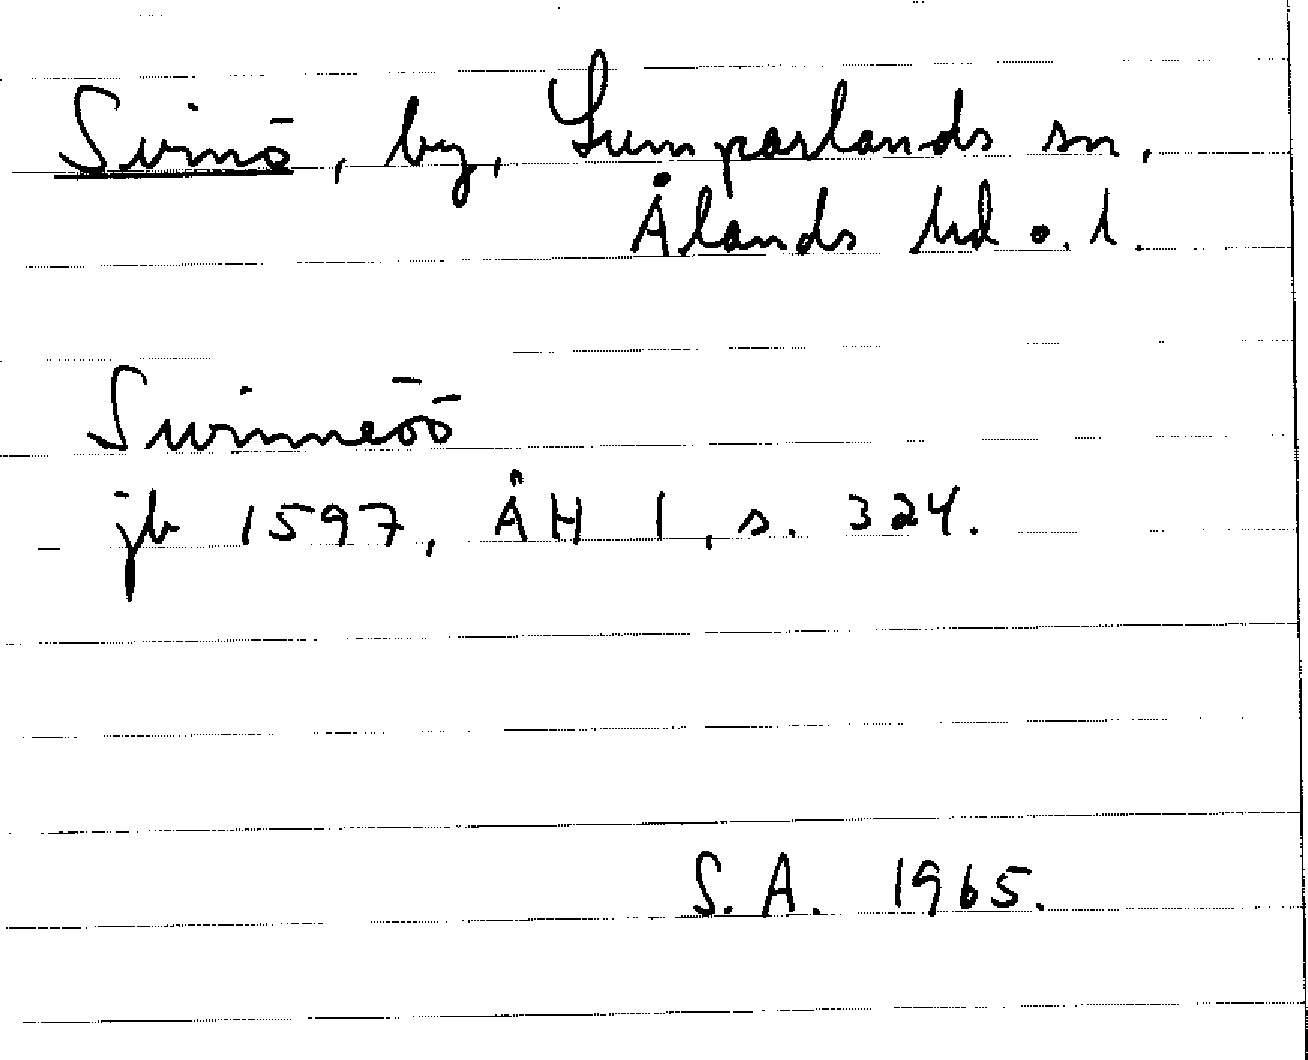 Svinö, by, Lumparlands sn,
Ålands hd o. l.
Swinneöö
jb 1597, ÅH I, s. 324.
S. A. 1965.